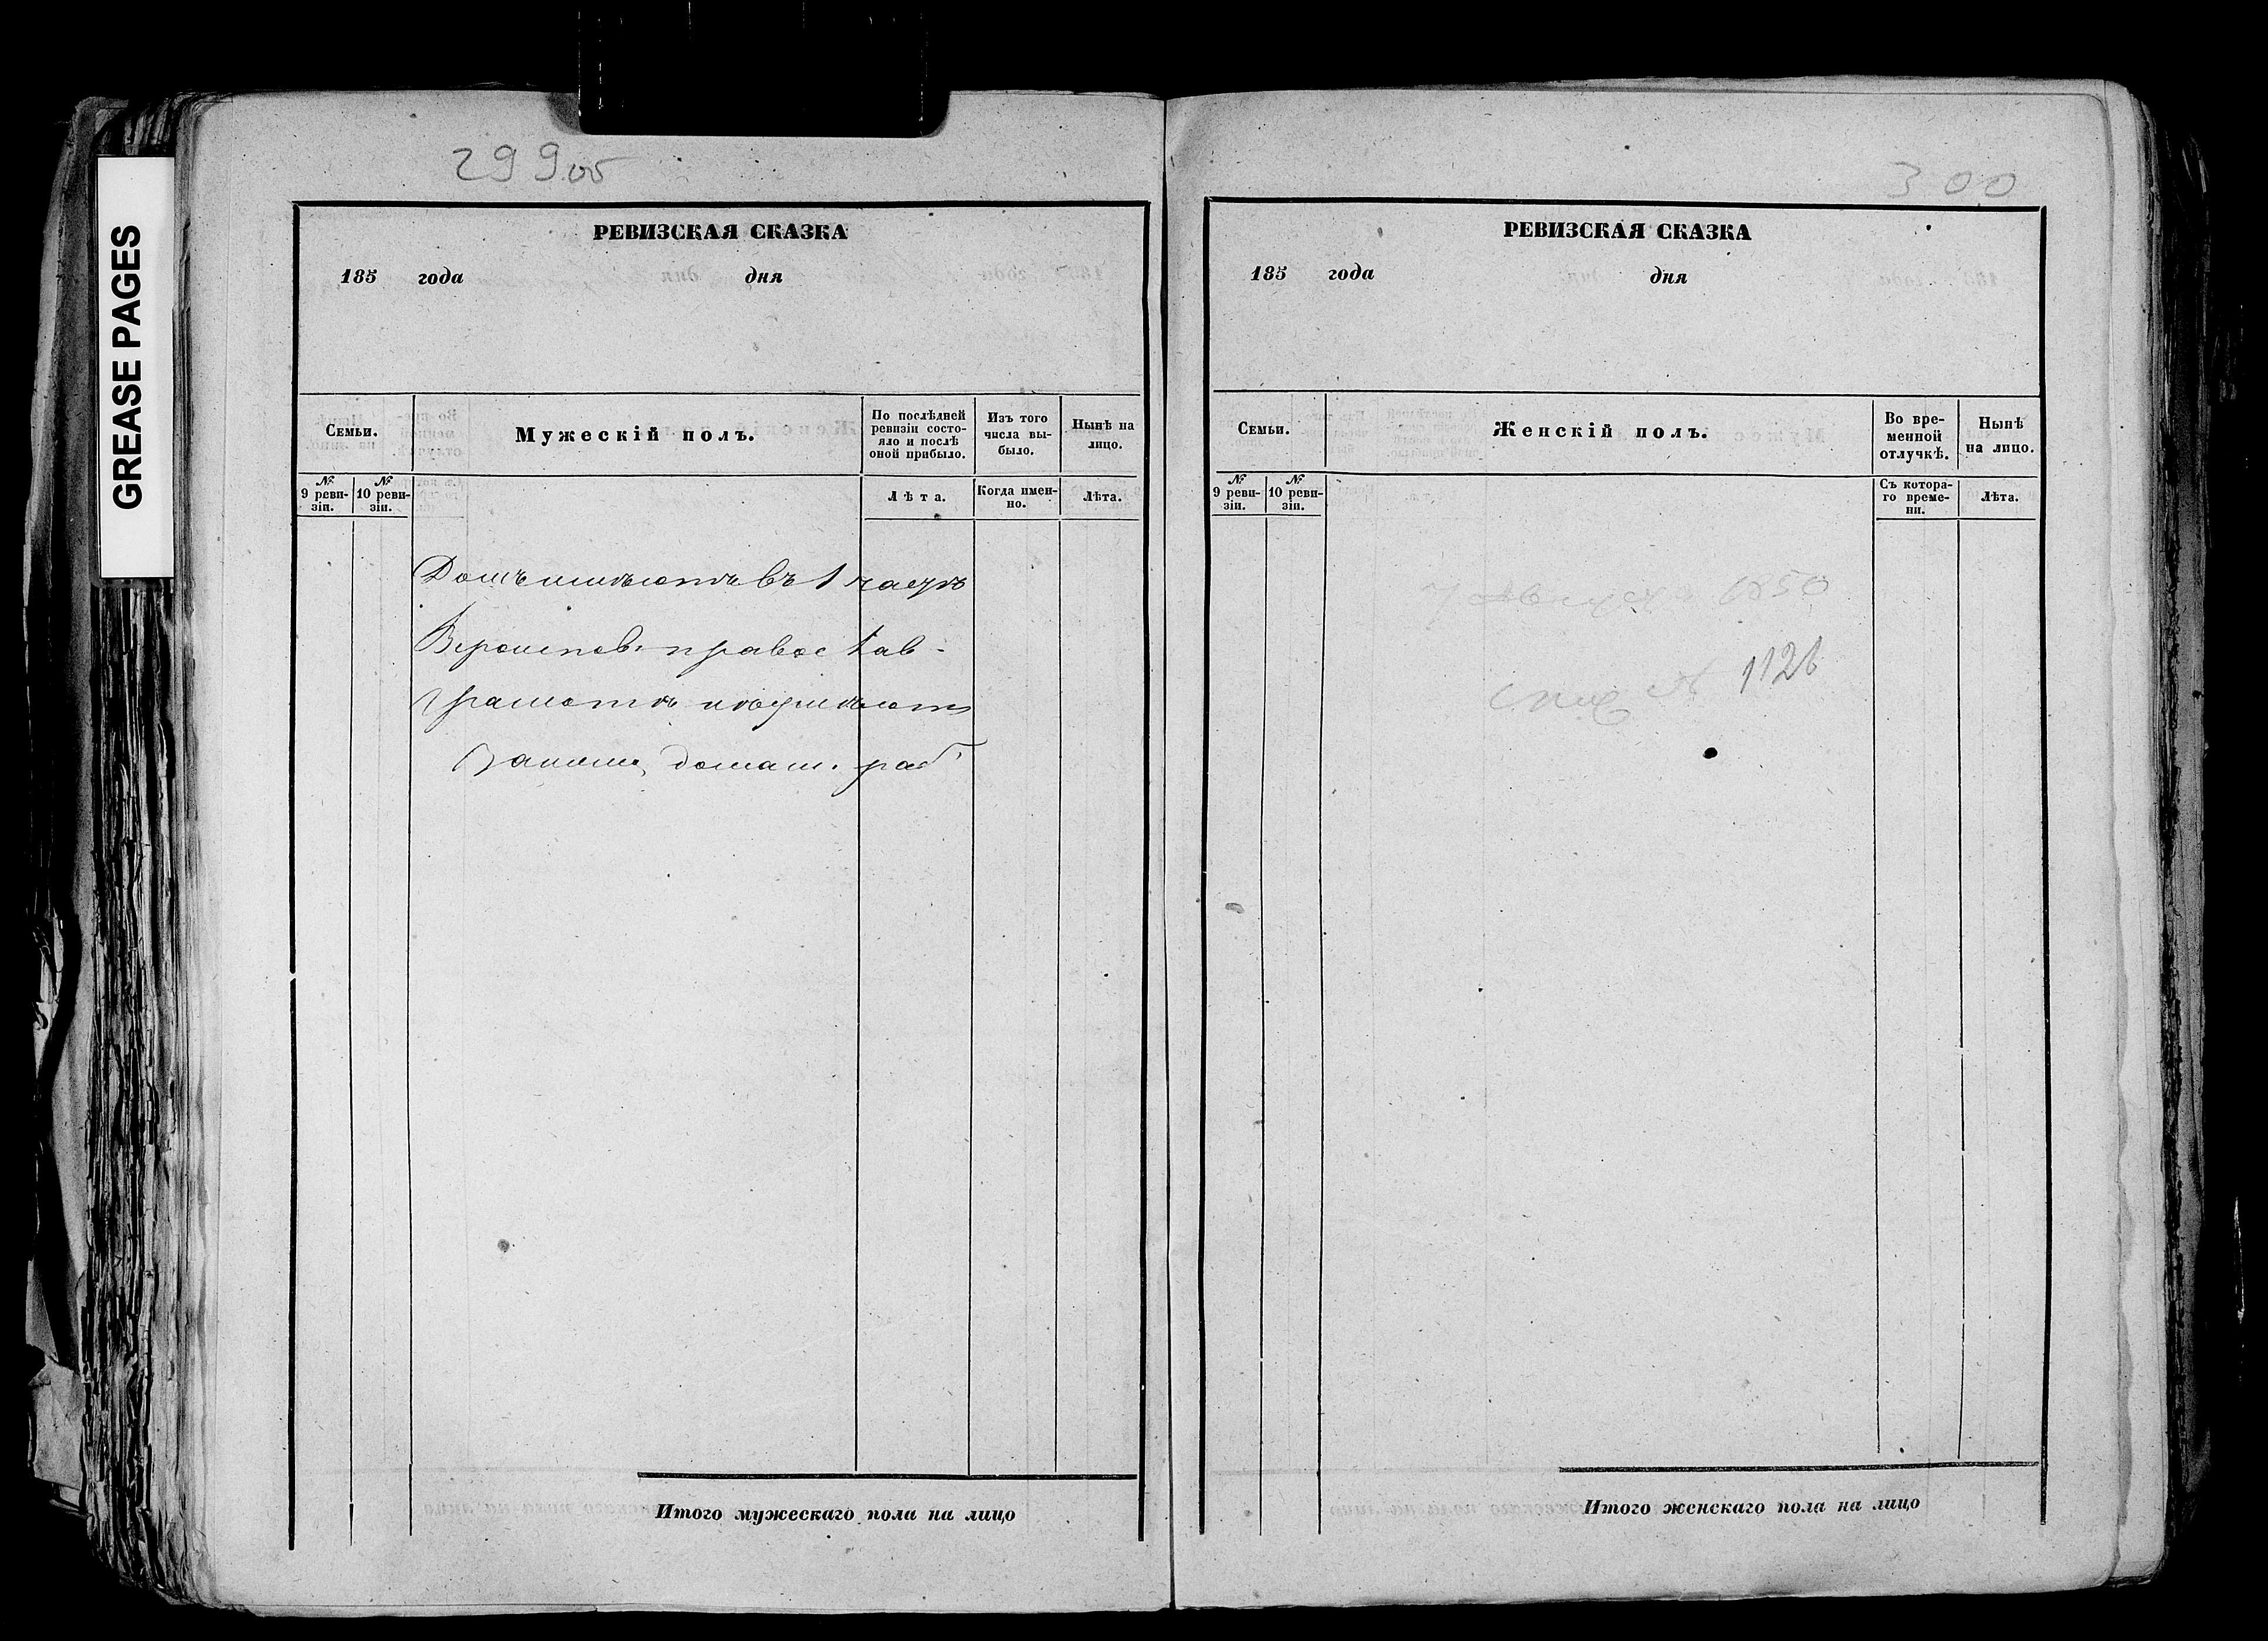 GREASE PAGES
299об
РЕВИЗСКАЯ СКАЗКА
185 года дня
Семьи.
Мужескій полъ.
По послѣдней ревизіи состояло и послѣ оной прибыло.
Изъ того числа выбыло.
Нынѣ на лицо.
№ 9 ревизіи.
№ 10 ревизіи.
Лѣта.
Когда именно.
Лѣта.
Домъ имѣютъ въ 1 части
Вероиспов. православ-
Грамотѣ не умѣютъ
Заним. домаш. раб
Итого мужескаго пола на лицо
300
РЕВИЗСКАЯ СКАЗКА
185 года дня
Семьи.
Женскій полъ.
Во временной отлучкѣ.
Нынѣ на лицо.
№ 9 ревизіи.
№ 10 ревизіи.
Съ котораго времени.
Лѣта.
августа 1850
№ 1126
Итого женскаго пола на лицо